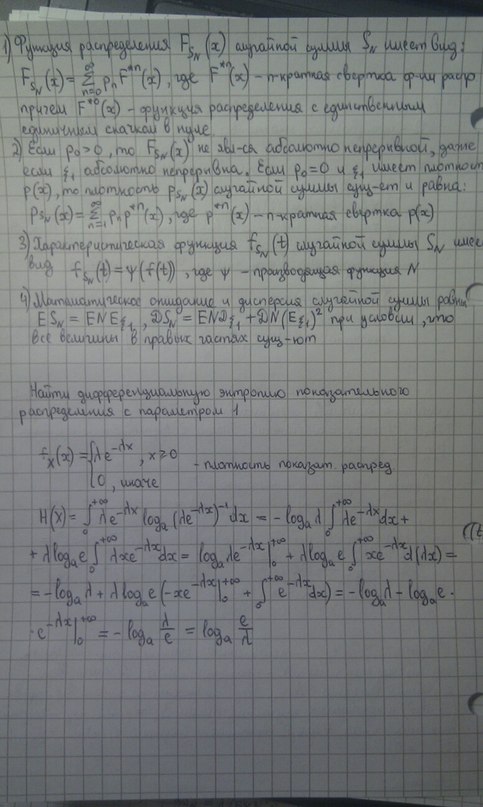 1) Функция распределения F_{S_N}(x) случайной суммы S_N имеет вид:
F_{S_N}(x) = ∑_{n=0}^{∞} p_n F^{*n}(x), где F^{*n}(x) – n-кратная свертка ф-ии распр
причем F^{*0}(x) – функция распределения с единственным
единичным скачком в нуле
2) Если p_0 > 0, то F_{S_N}(x) не явл-ся абсолютно непрерывной, даже
если ξ_1 абсолютно непрерывна. Если p_0 = 0 и ξ_1 имеет плотность
p(x), то плотность p_{S_N}(x) случайной суммы сущ-ет и равна:
p_{S_N}(x) = ∑_{n=1}^{∞} p_n p^{*n}(x), где p^{*n}(x) – n-кратная свертка p(x)
3) Характеристическая функция f_{S_N}(t) случайной суммы S_N имее
вид f_{S_N}(t) = ψ(f(t)), где ψ – производящая функция N
4) Математическое ожидание и дисперсия случайной суммы равны
ES_N = EN Eξ_1, DS_N = EN Dξ_1 + DN(Eξ_1)^2 при условии, что
все величины в правых частях сущ-ют
Найти дифференциальную энтропию показательного
распределения с параметром 1
f_X(x) = { λe^{-λx}, x ≥ 0
0, иначе – плотность показат. распред
H(X) = ∫_0^{+∞} λe^{-λx} log_a (λe^{-λx})^{-1} dx = -log_a λ ∫_0^{+∞} λe^{-λx} dx +
+ λ log_a e ∫_0^{+∞} λxe^{-λx} dx = log_a λe^{-λx} |_0^{+∞} + λ log_a e ∫_0^{+∞} xe^{-λx} d(λx) =
= -log_a λ + λ log_a e (-xe^{-λx} |_0^{+∞} + ∫_0^{+∞} e^{-λx} dx) = -log_a λ - log_a e ·
· e^{-λx} |_0^{+∞} = -log_a λ/e = log_a e/λ